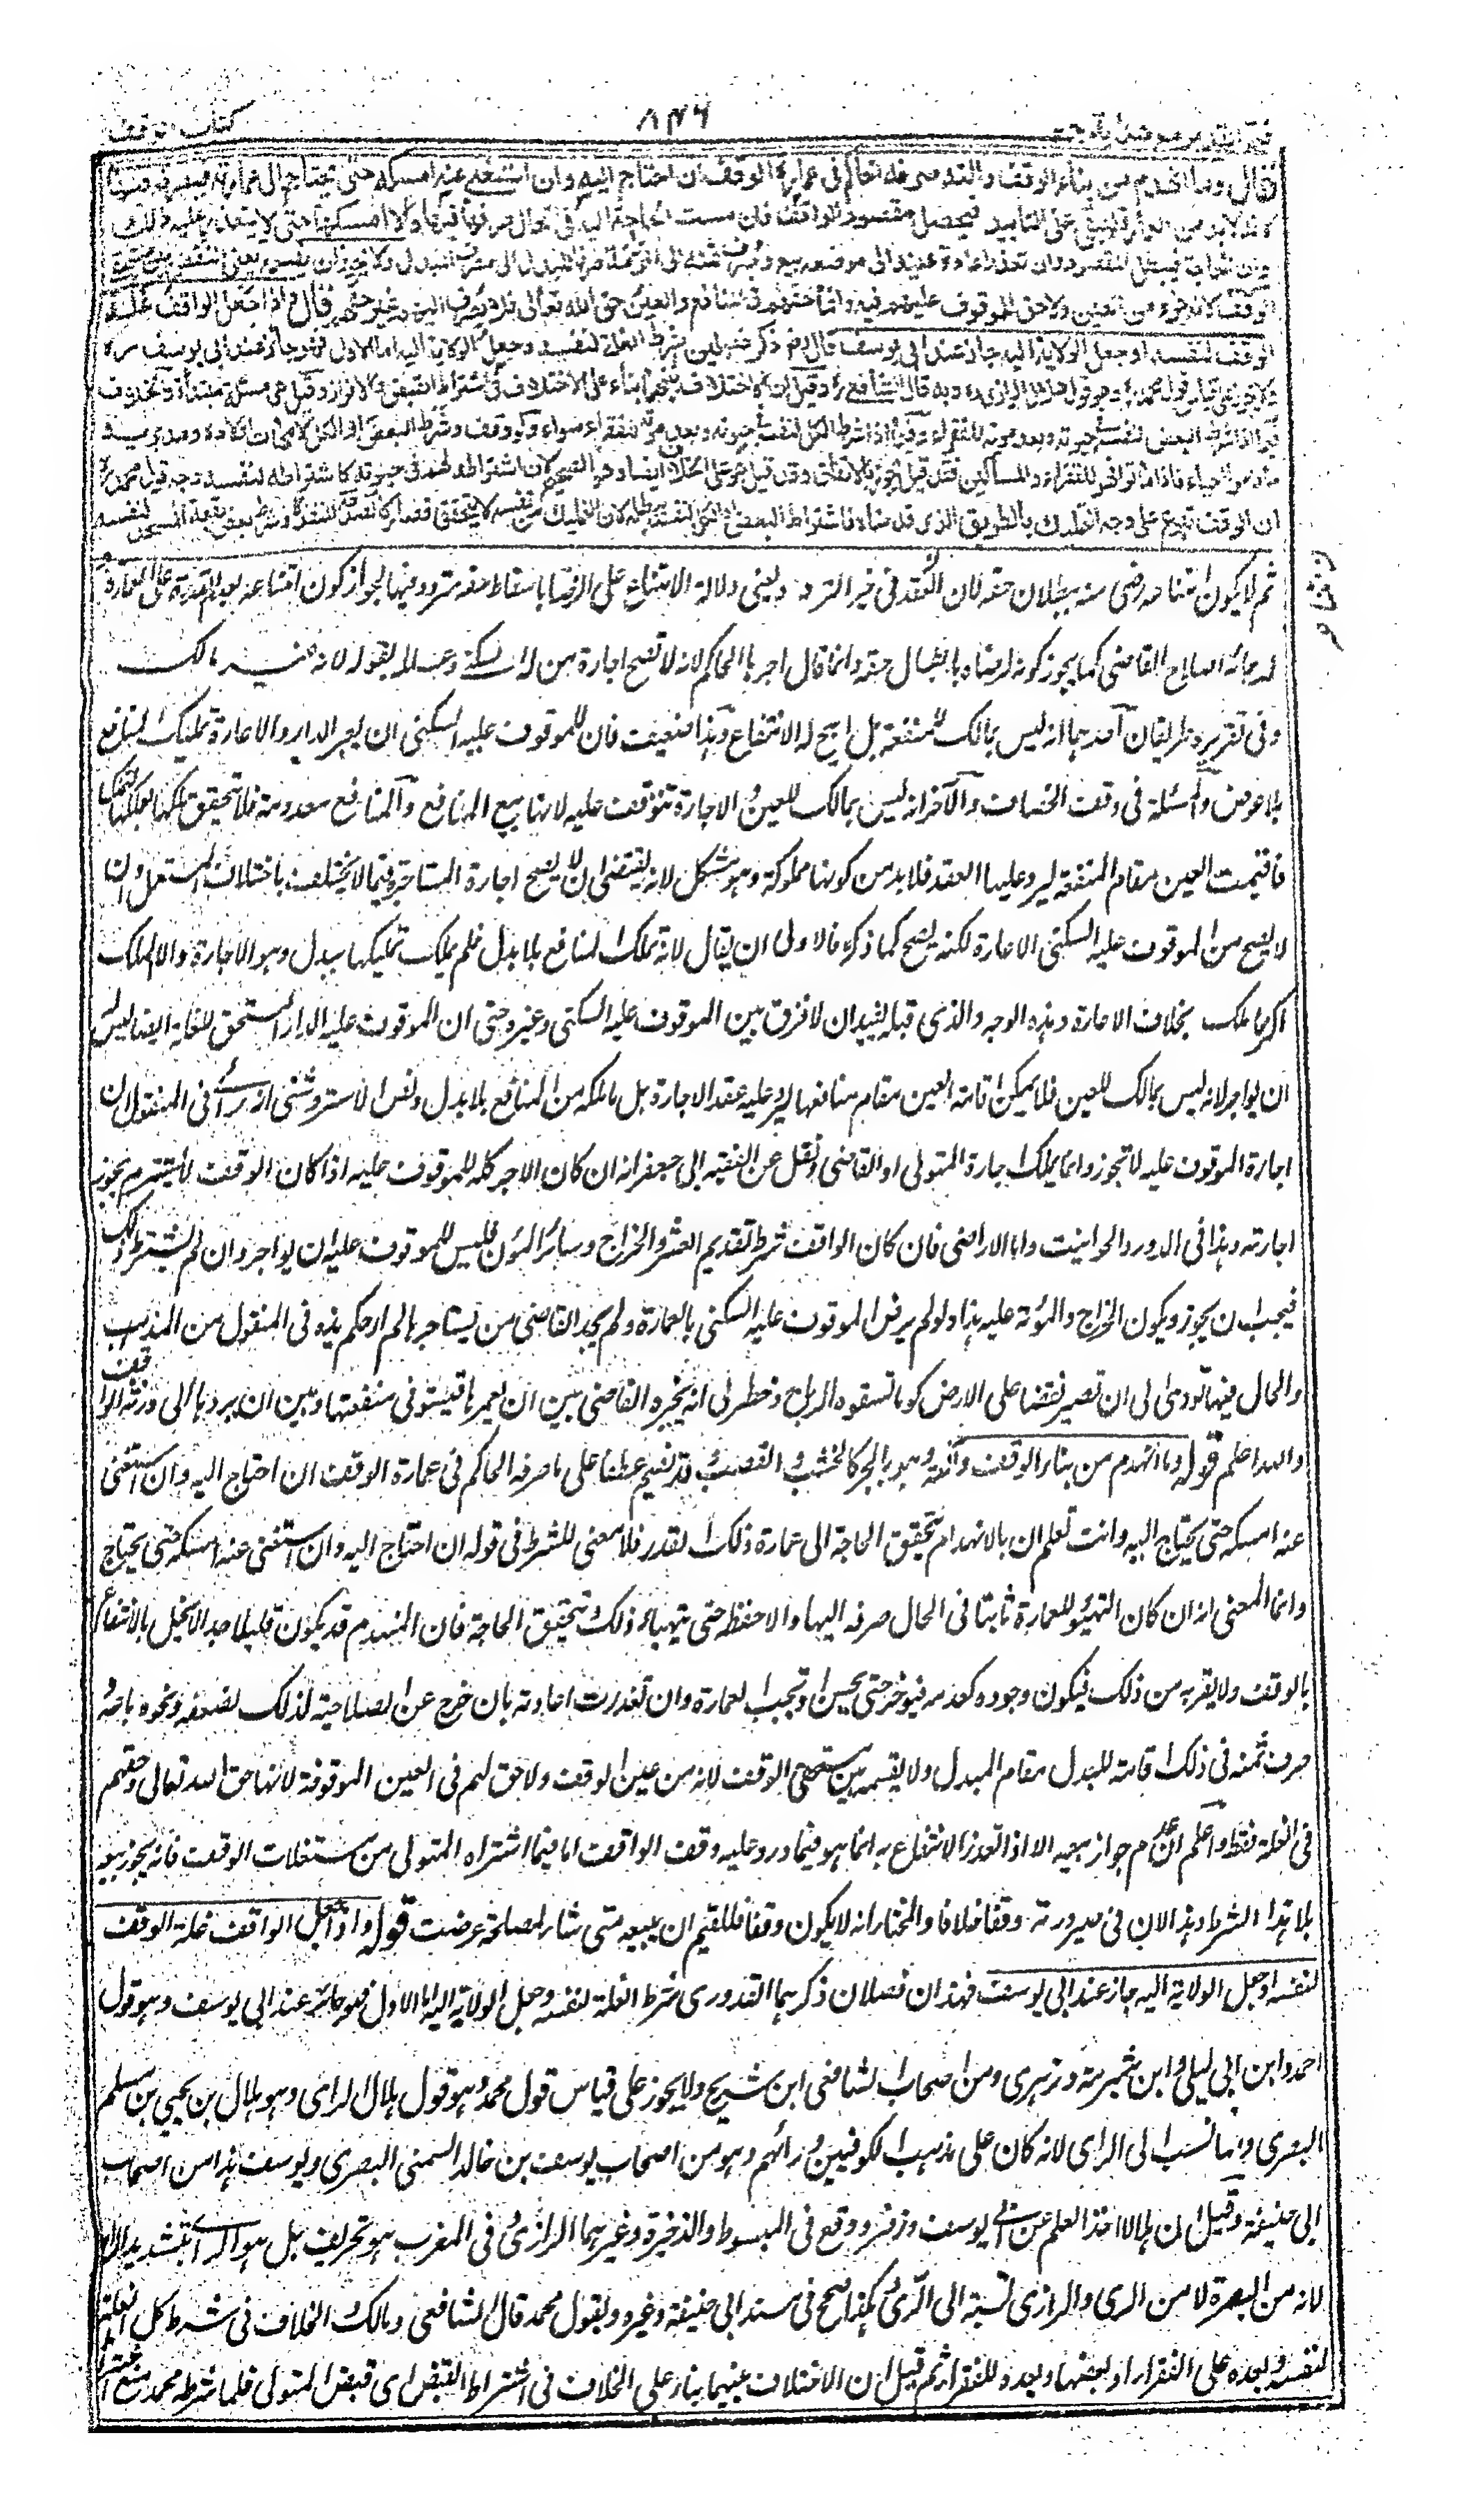 ٨٤٦
كتاب الوقف
قال وما انهدم من بناء الوقف وآلته صرفه الحاكم فى عمارة الوقف ان احتاج اليه وان استغنى عنه امسكه حتى يحتاج الى عمارته فيصرفه فيها
لانه لا بد من العمارة ليبقى على التابيد فيحصل مقصود الواقف فان مست الحاجة اليه فى الحال صرفها فيها والا امسكها حتى لا يتعذر عليه ذلك
وان تعذر اعادة عينه الى موضعه بيع وصرف ثمنه الى المرمة صرفا للبدل الى مصرف المبدل ولا يجوز ان يقسمه يعنى النقض بين مستحقى
الوقف لانه جزء من العين ولا حق للموقوف عليهم فيه وانما حقهم فى المنافع والعين حق الله تعالى فلا يصرف اليهم غير حقهم قال واذا جعل الواقف غلة
الوقف لنفسه او جعل الولاية اليه جاز عند ابى يوسف قال رض ذكر فصلين شرط الغلة لنفسه وجعل الولاية اليه اما الاول فهو جائز عند ابى يوسف
ولا يجوز على قياس قول محمد وهو قول هلال الرازى وبه قال الشافعى وقيل ان الاختلاف بينهما بناء على الاختلاف فى اشتراط القبض والافراز وقيل هى مسئلة مبتدأة والخلاف
فيما اذا شرط البعض لنفسه فى حيوته وبعد موته للفقراء وفيما اذا شرط الكل لنفسه فى حيوته وبعد موته للفقراء سواء ولو وقف وشرط البعض او الكل لامهات اولاده ومدبريه
ما داموا احياء فاذا ماتوا فهو للفقراء والمساكين فقد قيل يجوز بالاتفاق وقد قيل هو على الخلاف ايضا وهو الصحيح لان اشتراطه لهم فى حيوته كاشتراطه لنفسه وجه قول محمد
ان الوقف تبرع على وجه التمليك بالطريق الذى قدمناه فاشتراط البعض او الكل لنفسه يبطله لان التمليك من نفسه لا يتحقق فصار كالصدقة المنفذة وشرط بعض بقعة المسجد لنفسه
ثم لا يكون امتناعه رضى منه ببطلان حقه لانه فى حيز التردد يعنى دلالة الامتناع على الرضا باسقاط حقه متردد فيها لجواز كون امتناعه لعدم القدرة على العمارة
او لرجائه اصلاح القاضى كما يجوز كونه لرضاه بابطال حقه وانما قال اجرها الحاكم لانه لا تصح اجارة من له السكنى وعلله بقوله لانه غير مالك
وفى تقريره طريقان احدهما انه ليس بمالك للمنفعة بل ابيح له الانتفاع وهذا ضعيف فان للموقوف عليه السكنى ان يعير الدار والاعارة تمليك المنافع
بلا عوض والمسئلة فى وقف الخصاف والآخر انه ليس بمالك للعين والاجارة تتوقف عليه لانها بيع المنافع والمنافع معدومة فلا يتحقق
فاقيمت العين مقام المنفعة ليرد عليها العقد فلا بد من كونها مملوكة وهو مشكل لانه يقتضى ان لا يصح اجارة المستاجر فيما لا يختلف باختلاف المستعمل وان
لا يصح من الموقوف عليه السكنى الاعارة لكنه يصح كما ذكره فالاولى ان يقال لانه تملك المنافع بلا بدل فلم يملك تمليكها ببدل وهو الاجارة والا لملك
اكثر مما ملك بخلاف الاعارة وهذه الوجه والذى قبله يفيدان لا فرق بين الموقوف عليه السكنى وغيره حتى ان الموقوف عليه الدار المستحق للغلة ايضا ليس له
ان يواجر لانه ليس بمالك للعين فلا يمكن اقامة العين مقام منافعها ليرد عليه عقد الاجارة بل ما ملكه من المنافع بلا بدل ونص الاستروشنى انه رأى فى المنقول ان
اجارة الموقوف عليه لا تجوز وانما يملك اجارة المتولى او القاضى ونقل عن الفقيه ابى جعفر انه ان كان الاجر كله للموقوف عليه اذا كان الوقف لا يسترم يجوز
اجارته وهذا فى الدور والحوانيت واما الاراضى فان كان الواقف شرط تقديم العشر والخراج وسائر المؤن فليس للموقوف عليه ان يواجر وان لم يشترط ذلك
فيجب ان يجوز ويكون الخراج والمؤنة عليه هذا ولو لم يرض الموقوف عليه السكنى بالعمارة ولم يجد القاضى من يستاجرها لم ار حكم هذه فى المنقول من المذهب
والحال فيها تؤدى الى ان تصير نقضا على الارض كوما تسفوه الرياح وخطر لى انه يخيره القاضى بين ان يعمرها فيستوفى منفعتها وبين ان يردها الى ورثة الواقف
والله اعلم قوله وما انهدم من بناء الوقف وآلته وهو بالجر كالخشب والقصب وقد تصح عطفا على ما صرفه الحاكم فى عمارة الوقف ان احتاج اليه وان استغنى
عنه امسكه حتى يحتاج اليه وانت تعلم ان بالانهدام تتحقق الحاجة الى عمارة ذلك القدر فلا معنى للشرط فى قوله ان احتاج اليه وان استغنى عنه امسكه حتى يحتاج
وانما المعنى انه ان كان التهيؤ للعمارة ثابتا فى الحال صرفه اليها والا حفظه حتى يتهياء ذلك وتتحقق الحاجة فان المنهدم قد يكون قليلا جدا لا يخل بالانتفاع
بالوقف ولا يقربه من ذلك فيكون وجوده كعدمه فيؤخر حتى يحسن او تجب العمارة وان تعذرت اعادته بان خرج عن الصلاحية لذلك لضعفه ونحوه باعه و
صرف ثمنه فى ذلك اقامة للبدل مقام المبدل ولا يقسمه بين مستحقى الوقف لانه من عين الوقف ولا حق لهم فى العين الموقوفة لانها حق الله تعالى وحقهم
فى الغلة فقط واعلم ان عدم جواز بيعه الا اذا تعذر الانتفاع به انما هو فيما ورد عليه وقف الواقف اما فيما اشتراه المتولى من مستغلات الوقف فانه يجوز بيعه
بلا هذا الشرط وهذا لان فى صيرورته وقفا خلافا والمختار انه لا يكون وقفا فللقيم ان يبيعه متى شاء لمصلحة عرضت قوله واذا جعل الواقف غلة الوقف
لنفسه او جعل الولاية اليه جاز عند ابى يوسف فهذان فصلان ذكرهما القدورى شرط الغلة لنفسه وجعل الولاية اليه اما الاول فهو جائز عند ابى يوسف وهو قول
احمد وابن ابى ليلى وابن شبرمة وزهرى ومن اصحاب الشافعى ابن شريح ولا يجوز على قياس قول محمد وهو قول هلال الراى وهو هلال بن يحيى بن مسلم
البصرى وانما نسب الى الراى لانه كان على مذهب الكوفيين ورائهم وهو من اصحاب يوسف بن خالد السمتى البصرى ويوسف هذا من اصحاب
ابى حنيفة وقيل ان هلالا اخذ العلم عن ابى يوسف وزفر ووقع فى المبسوط والذخيرة وغيرهما الرازى وفى المغرب هو تحريف بل هو الراى بتشديد الراء
لانه من البصرة لا من الرى والرازى نسبة الى الرى وهكذا صحح فى مسند ابى حنيفة وغيره وبقول محمد قال الشافعى ومالك والخلاف فى شرط كل الغلة
لنفسه وبعده على الفقراء او بعضها وبعده للفقراء ثم قيل ان الاختلاف بينهما بناء على الخلاف فى اشتراط القبض اى قبض المتولى فلما شرطه محمد منع